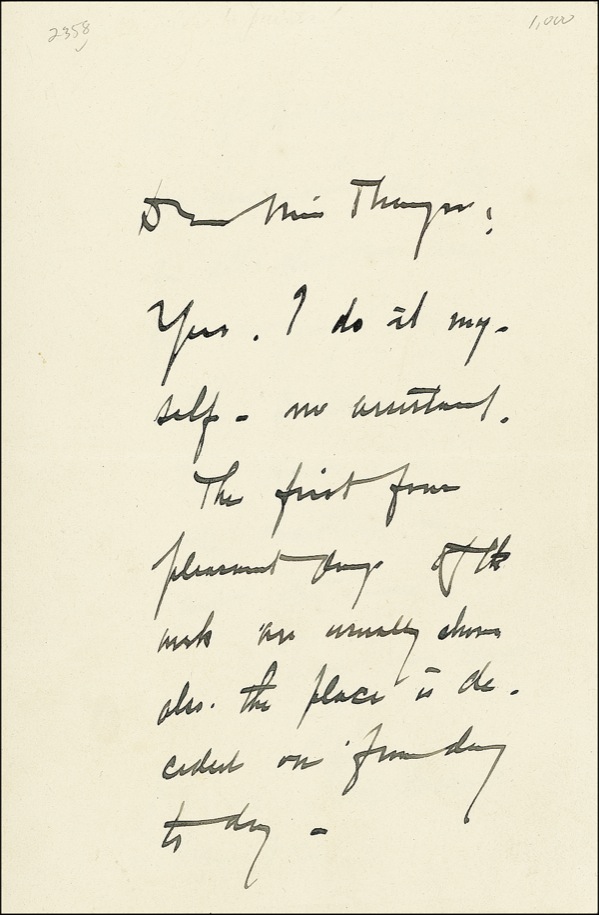 2358
1,000
Dear Miss Thayer;
Yes. I do it my-
self - no assistant.
The first four
pleasant days of the
week are usually chosen
also. the place is de-
cided on from day
to day -